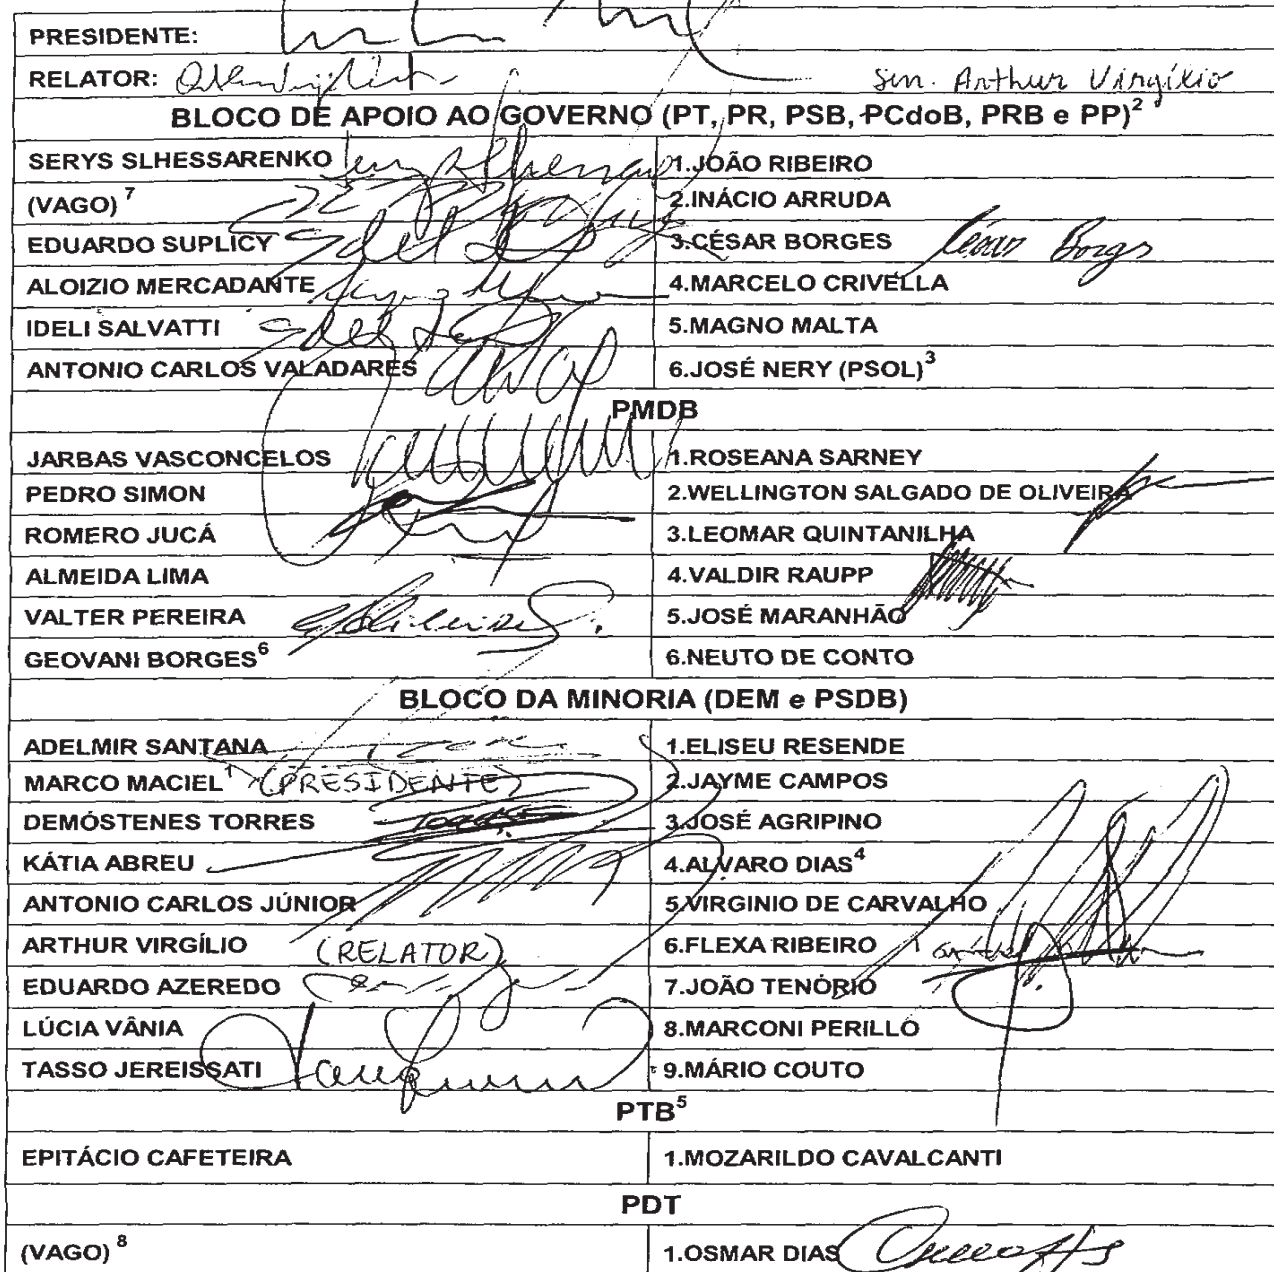 PRESIDENTE:
RELATOR: Sen. Arthur Virgílio
BLOCO DE APOIO AO GOVERNO (PT, PR, PSB, PCdoB, PRB e PP)²
SERYS SLHESSARENKO 1.JOÃO RIBEIRO
(VAGO) ⁷ 2.INÁCIO ARRUDA
EDUARDO SUPLICY 3.CÉSAR BORGES César Borges
ALOIZIO MERCADANTE 4.MARCELO CRIVELLA
IDELI SALVATTI 5.MAGNO MALTA
ANTONIO CARLOS VALADARES 6.JOSÉ NERY (PSOL)³
PMDB
JARBAS VASCONCELOS 1.ROSEANA SARNEY
PEDRO SIMON 2.WELLINGTON SALGADO DE OLIVEIRA
ROMERO JUCÁ 3.LEOMAR QUINTANILHA
ALMEIDA LIMA 4.VALDIR RAUPP
VALTER PEREIRA 5.JOSÉ MARANHÃO
GEOVANI BORGES⁶ 6.NEUTO DE CONTO
BLOCO DA MINORIA (DEM e PSDB)
ADELMIR SANTANA 1.ELISEU RESENDE
MARCO MACIEL¹ (PRESIDENTE) 2.JAYME CAMPOS
DEMÓSTENES TORRES 3.JOSÉ AGRIPINO
KÁTIA ABREU 4.ALVARO DIAS⁴
ANTONIO CARLOS JÚNIOR 5.VIRGINIO DE CARVALHO
ARTHUR VIRGÍLIO (RELATOR) 6.FLEXA RIBEIRO
EDUARDO AZEREDO 7.JOÃO TENÓRIO
LÚCIA VÂNIA 8.MARCONI PERILLO
TASSO JEREISSATI 9.MÁRIO COUTO
PTB⁵
EPITÁCIO CAFETEIRA 1.MOZARILDO CAVALCANTI
PDT
(VAGO) ⁸ 1.OSMAR DIAS